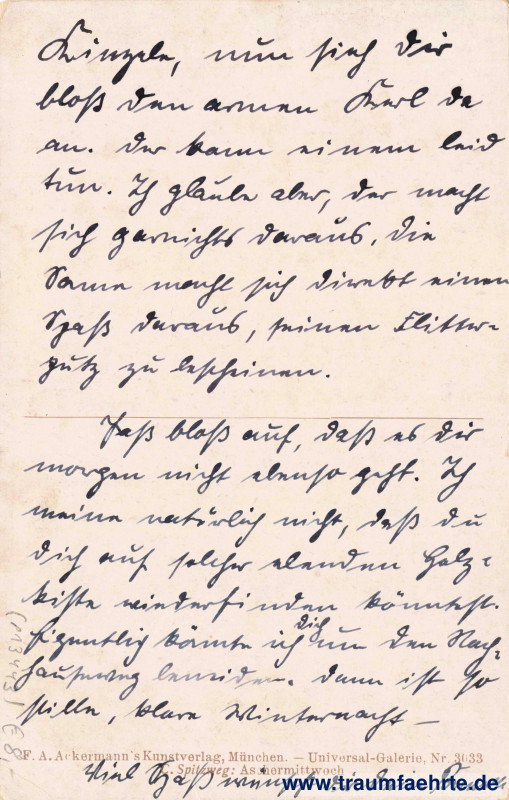 Kringele, nun sieh Dir
bloß den armen Kerl da
an. Der kann einem leid
tun. Ich glaube aber, der macht
sich garnichts daraus, die
Sonne macht sich direkt einen
Spaß daraus, seinen Flitter-
putz zu bescheinen.
Paß bloß auf, daß es dir
morgen nicht ebenso geht. Ich
meine natürlich nicht, daß du
dich auf solcher elenden Holz-
kiste wiederfinden könntest.
Eigentlich könnte ich Dich um den Nach-
hauseweg beneiden. dann ist so
stille, klare Winternacht –
F. A. Ackermann's Kunstverlag, München. — Universal-Galerie, Nr. 3633
Spitzweg: Aschermittwoch
Viel Spaß wünscht
(113443) € 8,
www.traumfaehrte.de